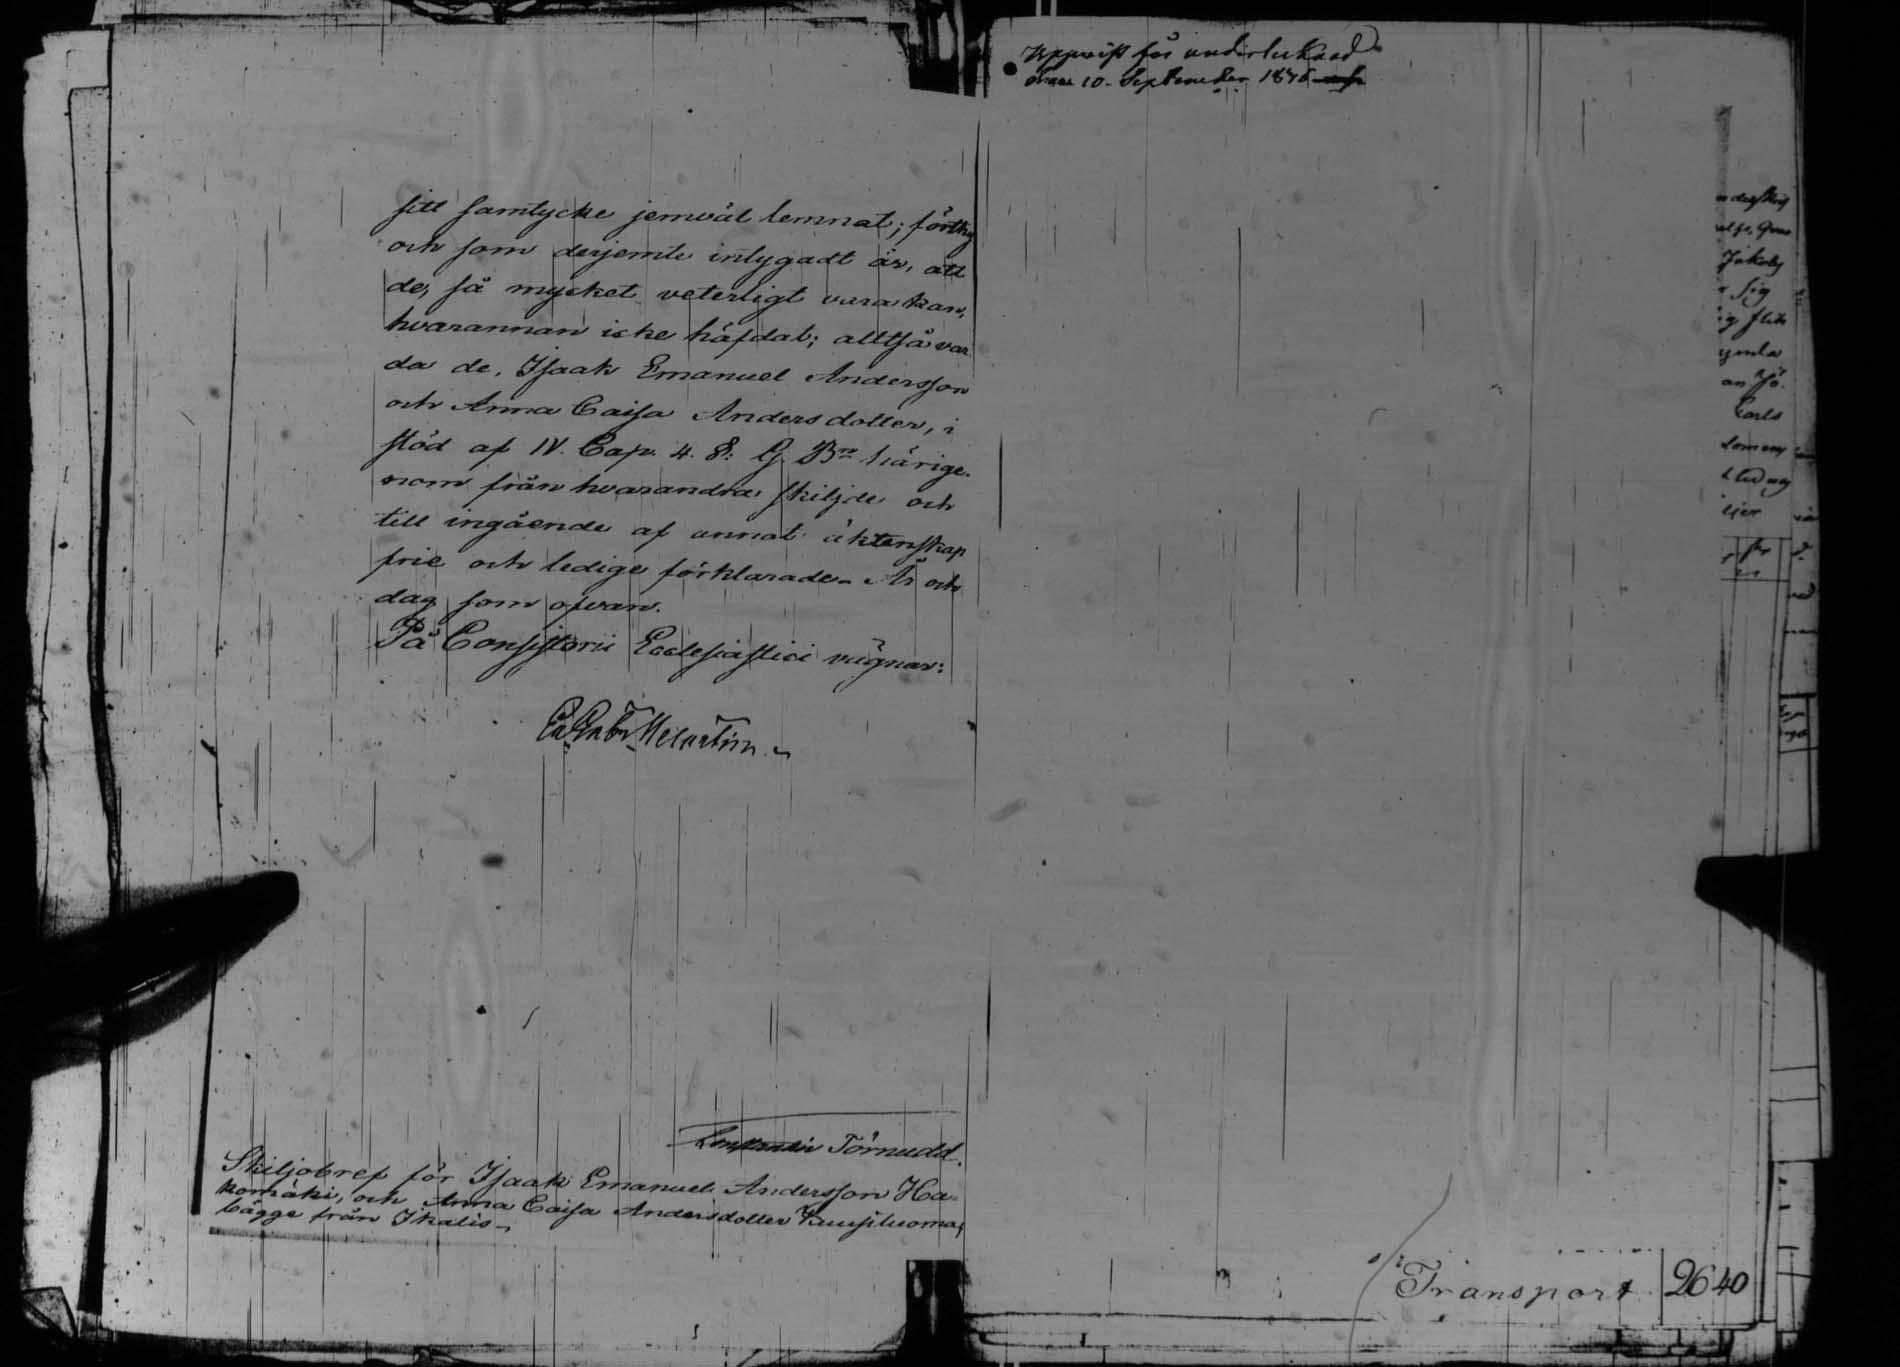 sitt samtycke jemväl lemnat; förthy
och som derjemte intygadt är, att
de, så mycket veterligt vara kan,
hvarannan icke häfdat; alltså var
da de, Isaak Emanuel Andersson
och Anna Caisa Andersdotter, i
stöd af IV. Cap. 4. §. G. Bn härige-
nom från hvarandra skiljde och
till ingående af annat äktenskap
frie och ledige förklarade. År och
dag som ofvan.
På Consistorii Ecclesiastici vägnar:
Melartin
Constantin Törnudd.
Skiljobref för Isaak Emanuel Andersson Ha-
komäki, och Anna Caisa Andersdotter Kuusiluoma,
bägge från Ikalis
Uppvist för undertecknad
den 10. September 1876
nderskrif
Jakobs
sig
ymla
an Jö-
Carls
Transport 26 40